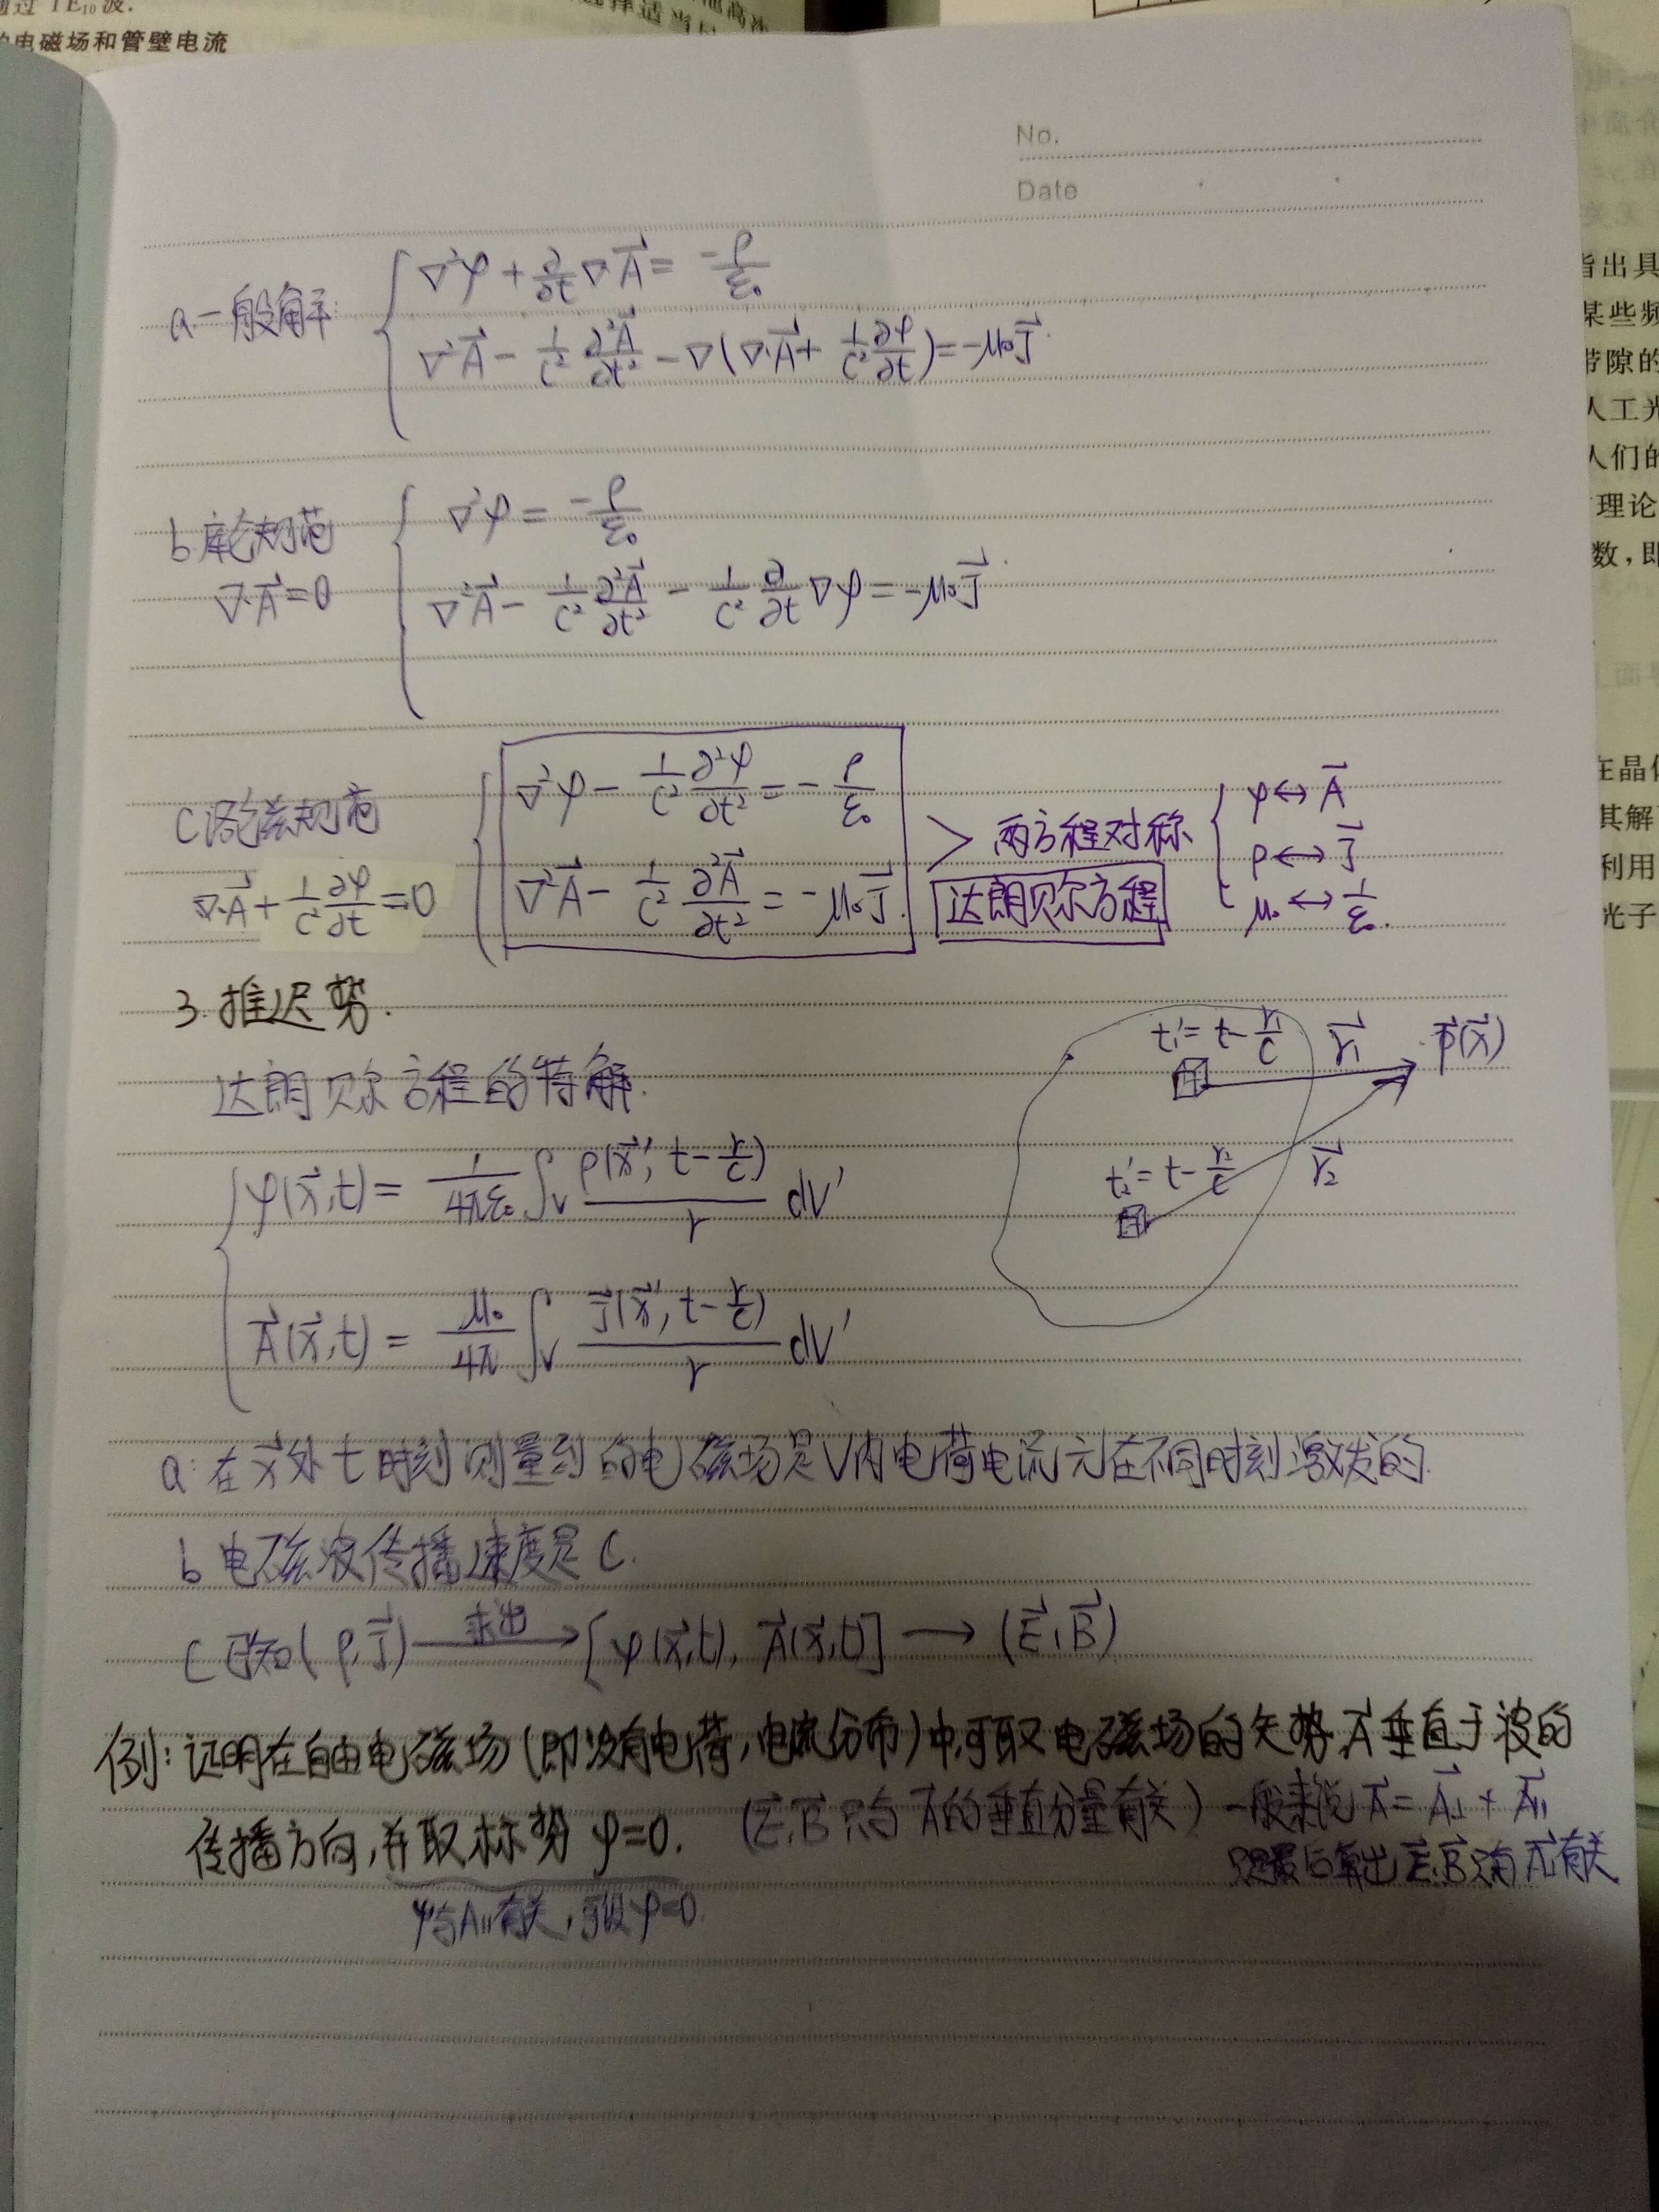 通过 TE₁₀波.
电磁场和管壁电流
No.
Date
a.一般解: ∇²φ + ∂/∂t ∇·A⃗ = -ρ/ε₀
∇²A⃗ - 1/c² ∂²A⃗/∂t² - ∇(∇·A⃗ + 1/c² ∂φ/∂t) = -μ₀J⃗.
b.库仑规范 ∇²φ = -ρ/ε₀
∇·A⃗=0 ∇²A⃗ - 1/c² ∂²A⃗/∂t² - 1/c² ∂/∂t ∇φ = -μ₀J⃗.
C 洛伦兹规范 ∇²φ - 1/c² ∂²φ/∂t² = -ρ/ε₀
∇·A⃗ + 1/c² ∂φ/∂t = 0 ∇²A⃗ - 1/c² ∂²A⃗/∂t² = -μ₀J⃗.
> 两方程对称
达朗贝尔方程
φ↔A⃗
ρ↔J⃗
μ₀↔1/ε₀.
3.推迟势.
达朗贝尔方程的特解.
φ(x⃗,t) = 1/4πε₀ ∫_V ρ(x⃗', t-r/c)/r dV'
A⃗(x⃗,t) = μ₀/4π ∫_V J⃗(x⃗', t-r/c)/r dV'
t₁'=t-r₁/c r⃗₁ P(x⃗)
t₂'=t-r₂/c r⃗₂
a:在x⃗处t时刻测量到的电磁场是V内电荷电流元在不同时刻激发的.
b 电磁波传播速度是C.
C 已知(ρ,J⃗) 求出→ [φ(x⃗,t), A⃗(x⃗,t)] → (E⃗,B⃗)
例:证明在自由电磁场(即没有电荷,电流分布)中,可取电磁场的矢势A⃗垂直于波的
传播方向,并取标势φ=0. (E⃗,B⃗只与A⃗的垂直分量有关) 一般来说A⃗=A⃗⊥+A⃗∥
只是最后算出E⃗,B⃗只与A⃗⊥有关
φ与A∥有关,可取φ=0.
指出具
某些频
带隙的
人工光
人们的
理论
数,即
在晶体
其解
利用
光子